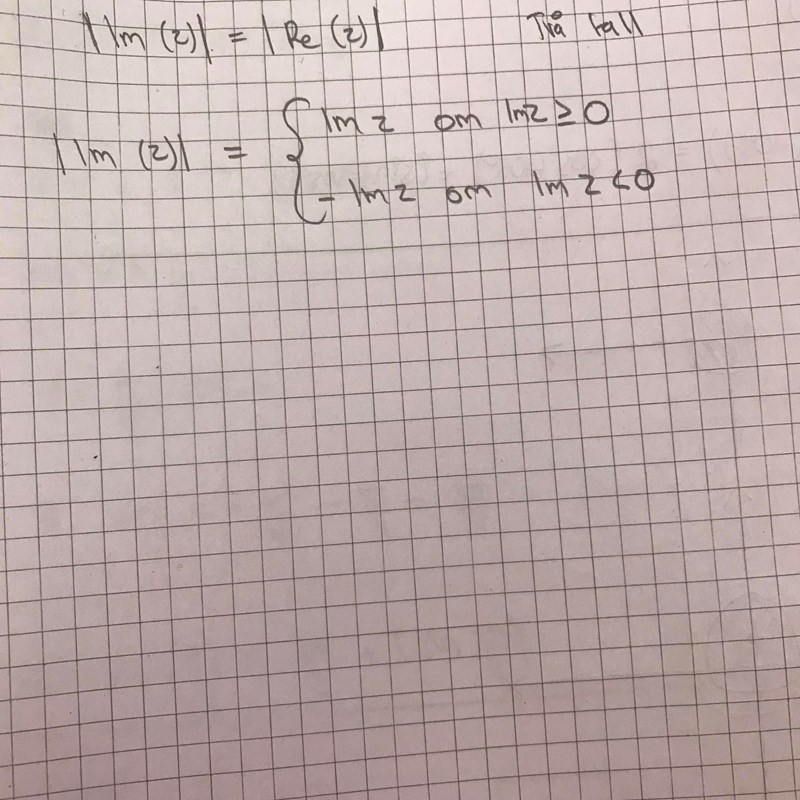 |Im (z)| = |Re (z)| Två fall
|Im (z)| = { Im z om Im z ≥ 0
- Im z om Im z < 0